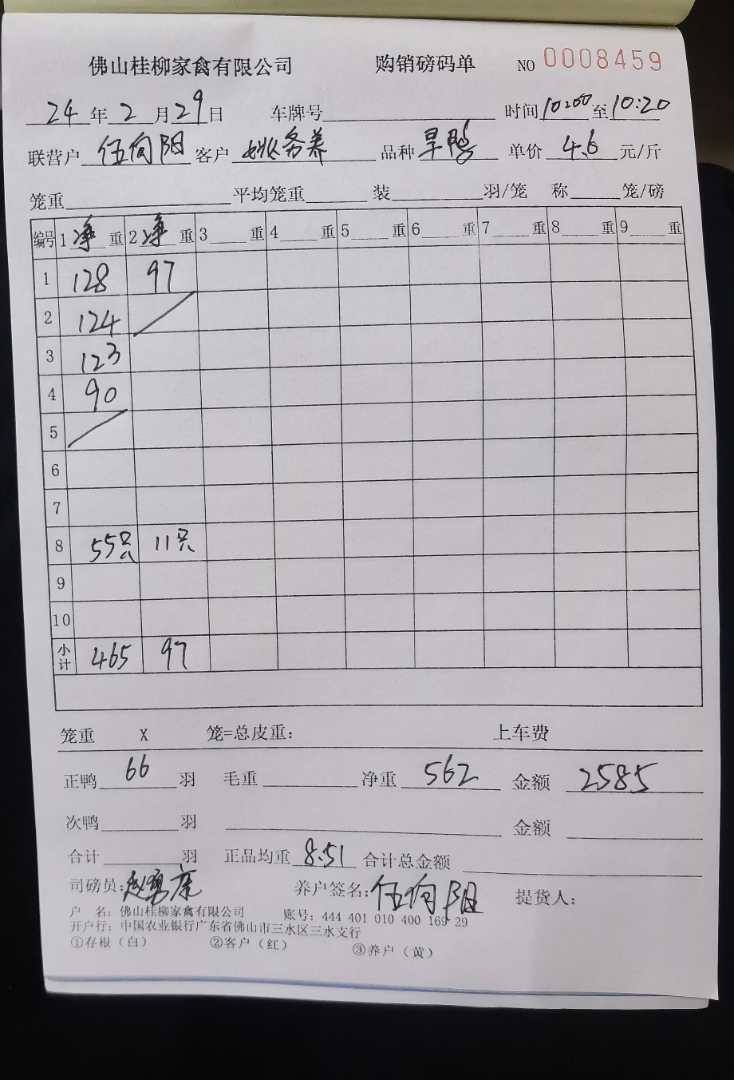 佛山桂柳家禽有限公司 购销磅码单 NO 0008459
24年2月29日 车牌号 时间10:00至10:20
联营户 伍向阳 客户 姚务养 品种 旱鸭 单价 4.6 元/斤
笼重 平均笼重 装 羽/笼 称 笼/磅
编号 1净重 2净重 3重 4重 5重 6重 7重 8重 9重
1 128 97
2 124
3 123
4 90
5
6
7
8 55只 11只
9
10
小计 465 97
笼重 X 笼=总皮重: 上车费
正鸭 66 羽 毛重 净重 562 金额 2585
次鸭 羽 金额
合计 羽 正品均重 8.51 合计总金额
司磅员: 养户签名: 伍向阳 提货人:
户 名: 佛山桂柳家禽有限公司 账号: 444 401 010 400 169 29
开户行: 中国农业银行广东省佛山市三水区三水支行
①存根(白) ②客户(红) ③养户(黄)